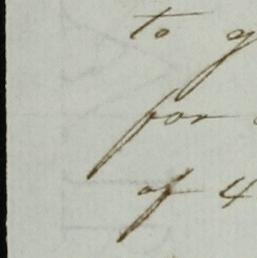 to
for
of 4